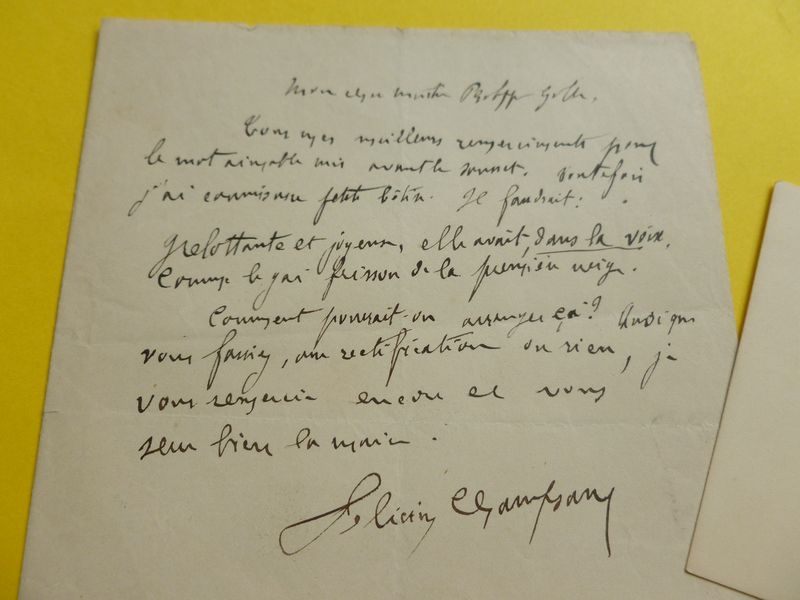 Mon cher maître Philippe Gille,
Tous mes meilleurs remerciements pour
le mot aimable mis avant le sonnet. Toutefois
j'ai commis une petite bêtise. Il faudrait :
Grelottante et joyeuse, elle avait, dans la voix,
Comme le gai frisson de la première neige.
Comment pourrait-on arranger ça ? Quoi que
vous fassiez, une rectification ou rien, je
vous remercie encore et vous
serre bien la main.
Félicien Champsaur